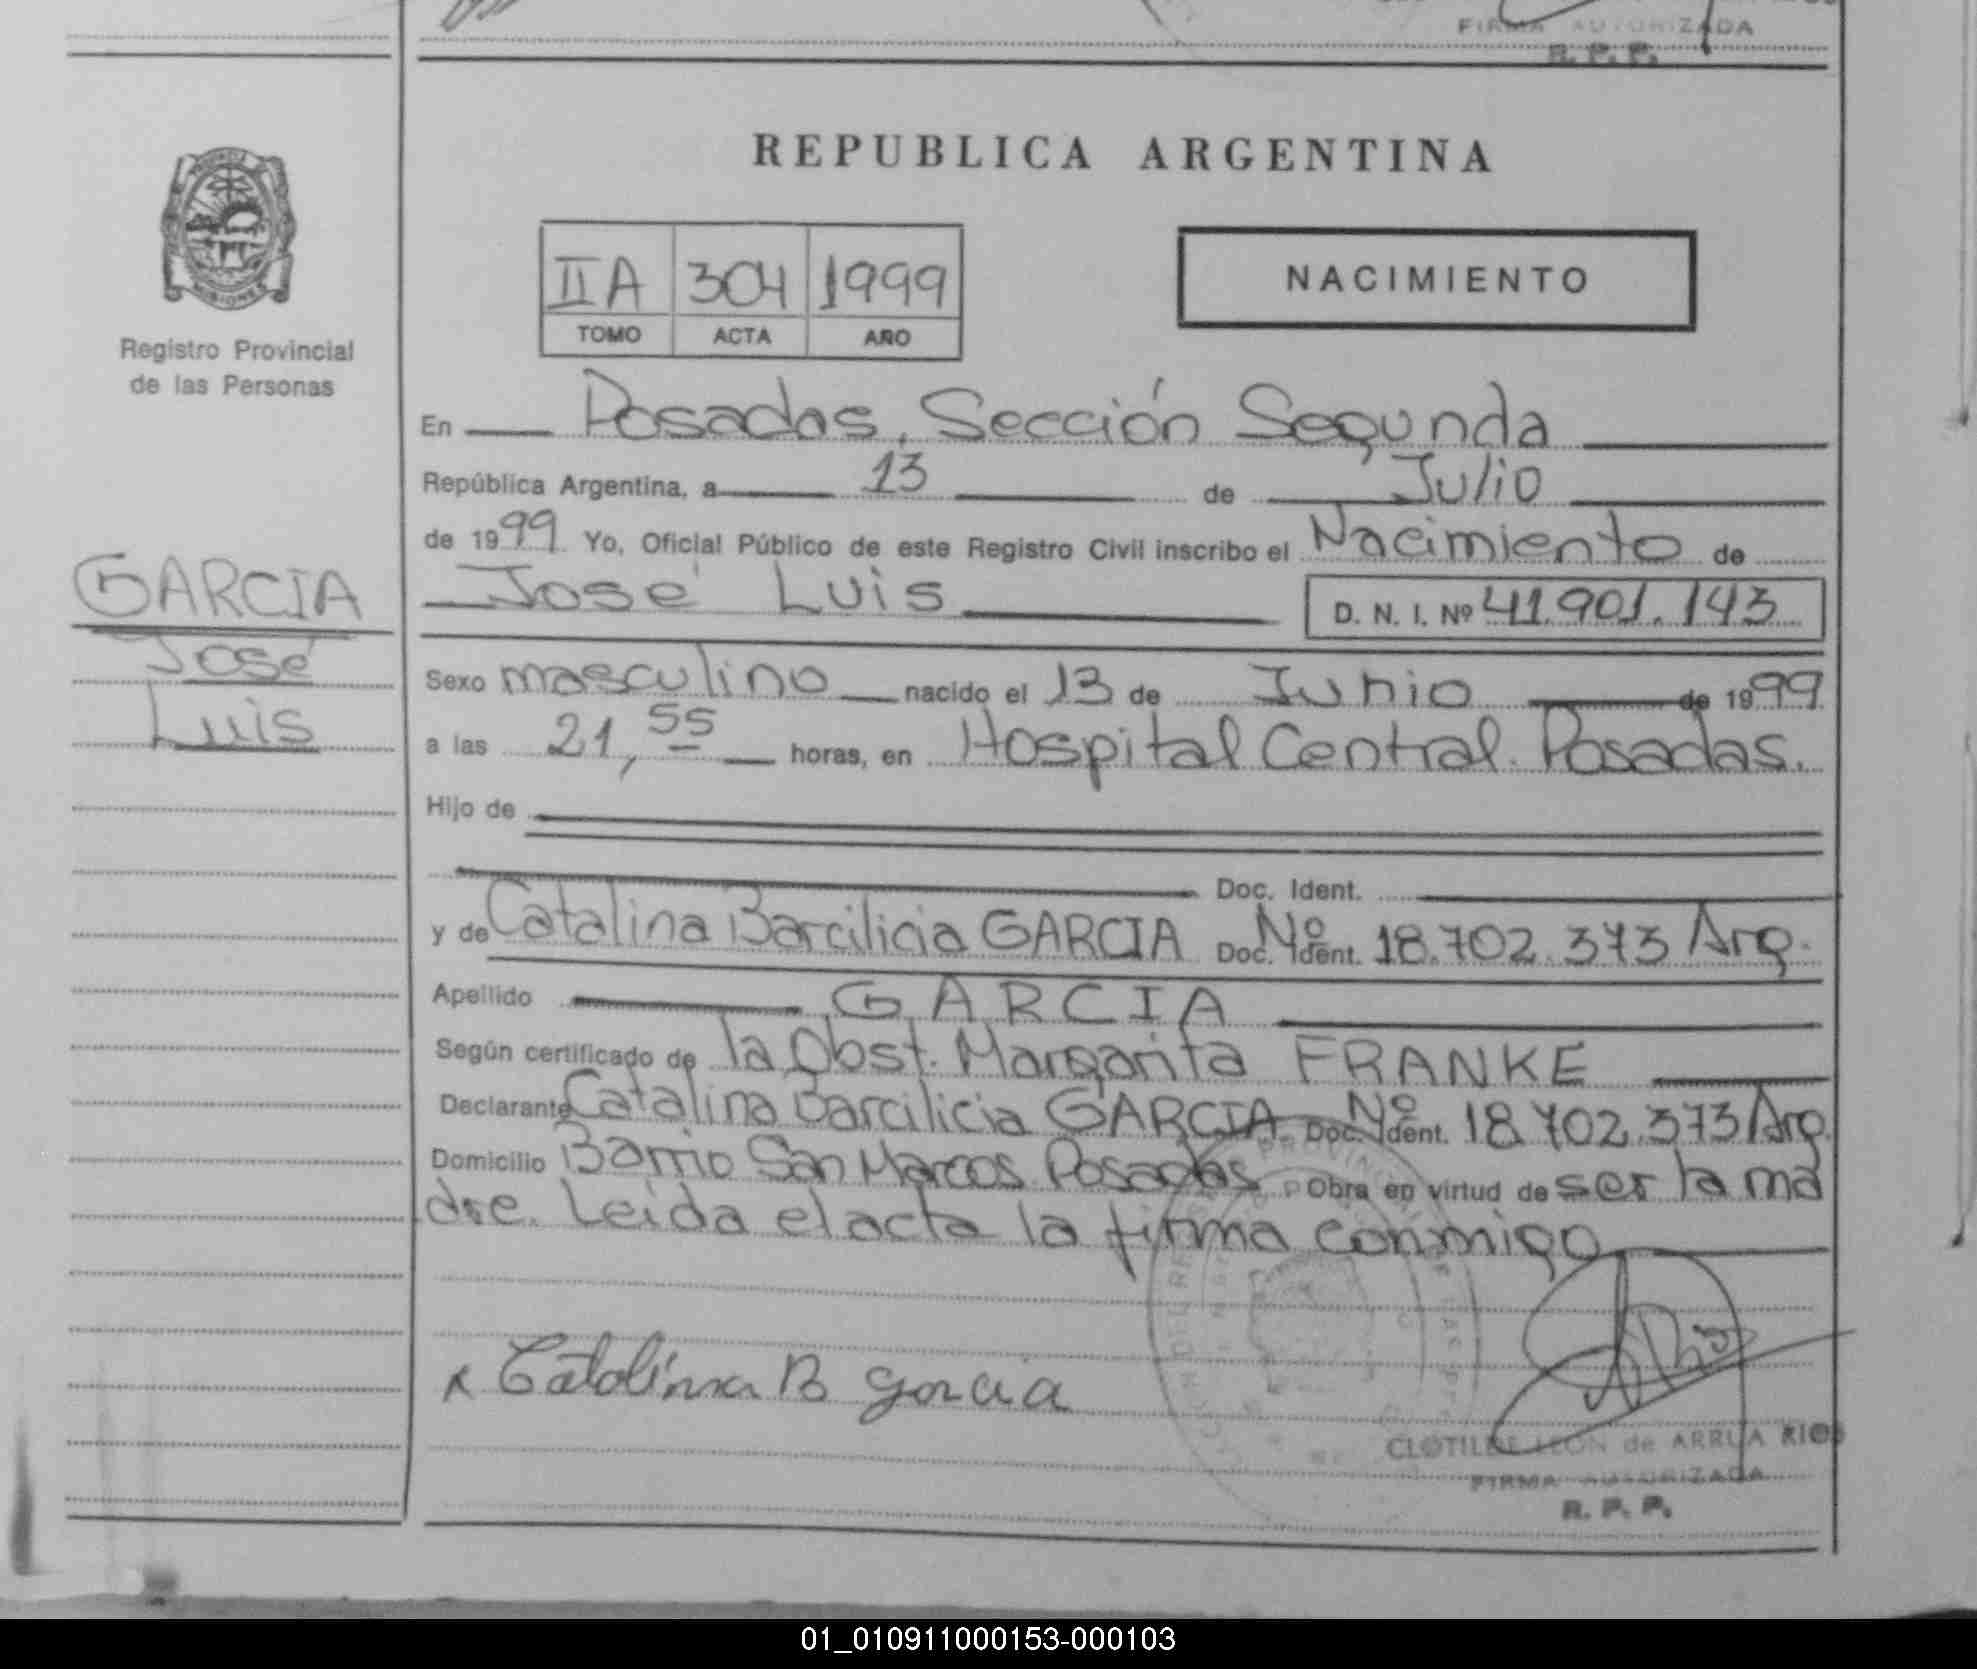 FIRMA AUTORIZADA
R. P. P.
REPUBLICA ARGENTINA
MISIONES
Registro Provincial
de las Personas
IIA 304 1999
TOMO ACTA AÑO
NACIMIENTO
En Posadas, Sección Segunda
República Argentina, a 13 de Julio
de 1999 Yo, Oficial Público de este Registro Civil inscribo el Nacimiento de
José Luis D. N. I. Nº 41.901.143
GARCIA
José
Luis
Sexo masculino nacido el 13 de Junio de 1999
a las 21,55 horas, en Hospital Central. Posadas.
Hijo de
Doc. Ident.
y de Catalina Barcilicia GARCIA Doc. Ident. Nº 18.702.373 Arg.
Apellido GARCIA
Según certificado de la Obst. Margarita FRANKE
Declarante Catalina Barcilicia GARCIA Doc. Ident. Nº 18.702.373 Arg.
Domicilio Barrio San Marcos. Posadas Obra en virtud de ser la ma
dre. Leida el acta la firma conmigo
x Catalina B garcia
CLOTILDE LEON de ARRUA RIOS
FIRMA AUTORIZADA
R. P. P.
01_010911000153-000103